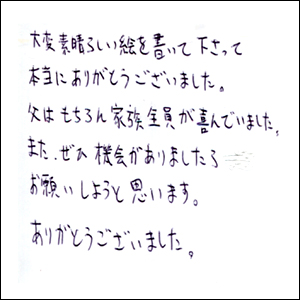 大変素晴らしい絵を書いて下さって
本当にありがとうございました。
父はもちろん家族全員が喜んでいました。
また、ぜひ機会がありましたら
お願いしようと思います。
ありがとうございました。